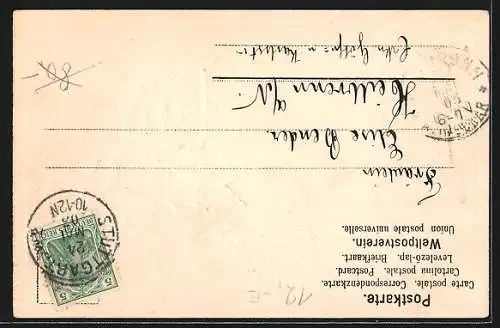 Postkarte.
Carte postale. Correspondenzkarte.
Cartolina postale. Postcard.
Levelező-lap. Briefkaart.
Weltpostverein.
Union postale universelle.
Fräulein
Elise Bender.
Heilbronn a/N.
STUTTGART
24
MAI
03
10-12N
DEUTSCHES REICH
5 5
12,-E
80,-